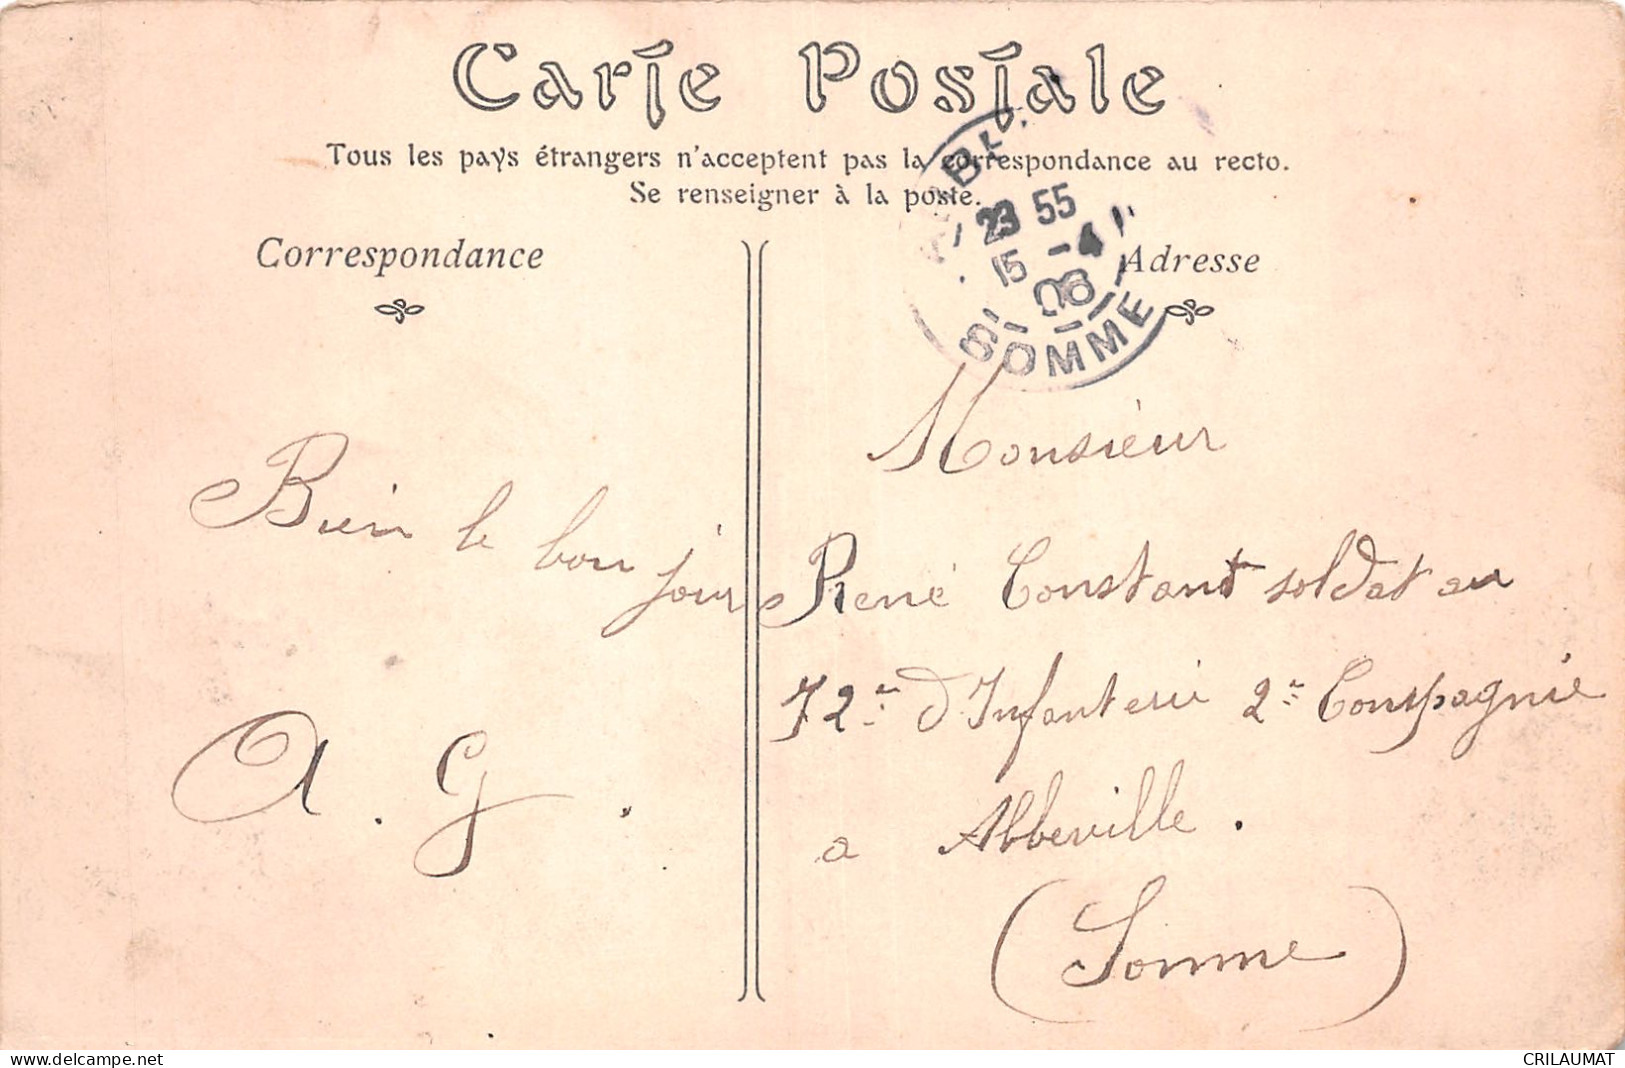 Carte Postale
Tous les pays étrangers n'acceptent pas la correspondance au recto.
Se renseigner à la poste.
23 55
15 -4
08
SOMME
Correspondance
Adresse
Bien le bon jour
A. G.
Monsieur
René Constant soldat au
72e d'Infanterie 2e Compagnie
a Abbeville.
(Somme)
delcampe.net
CRILAUMAT